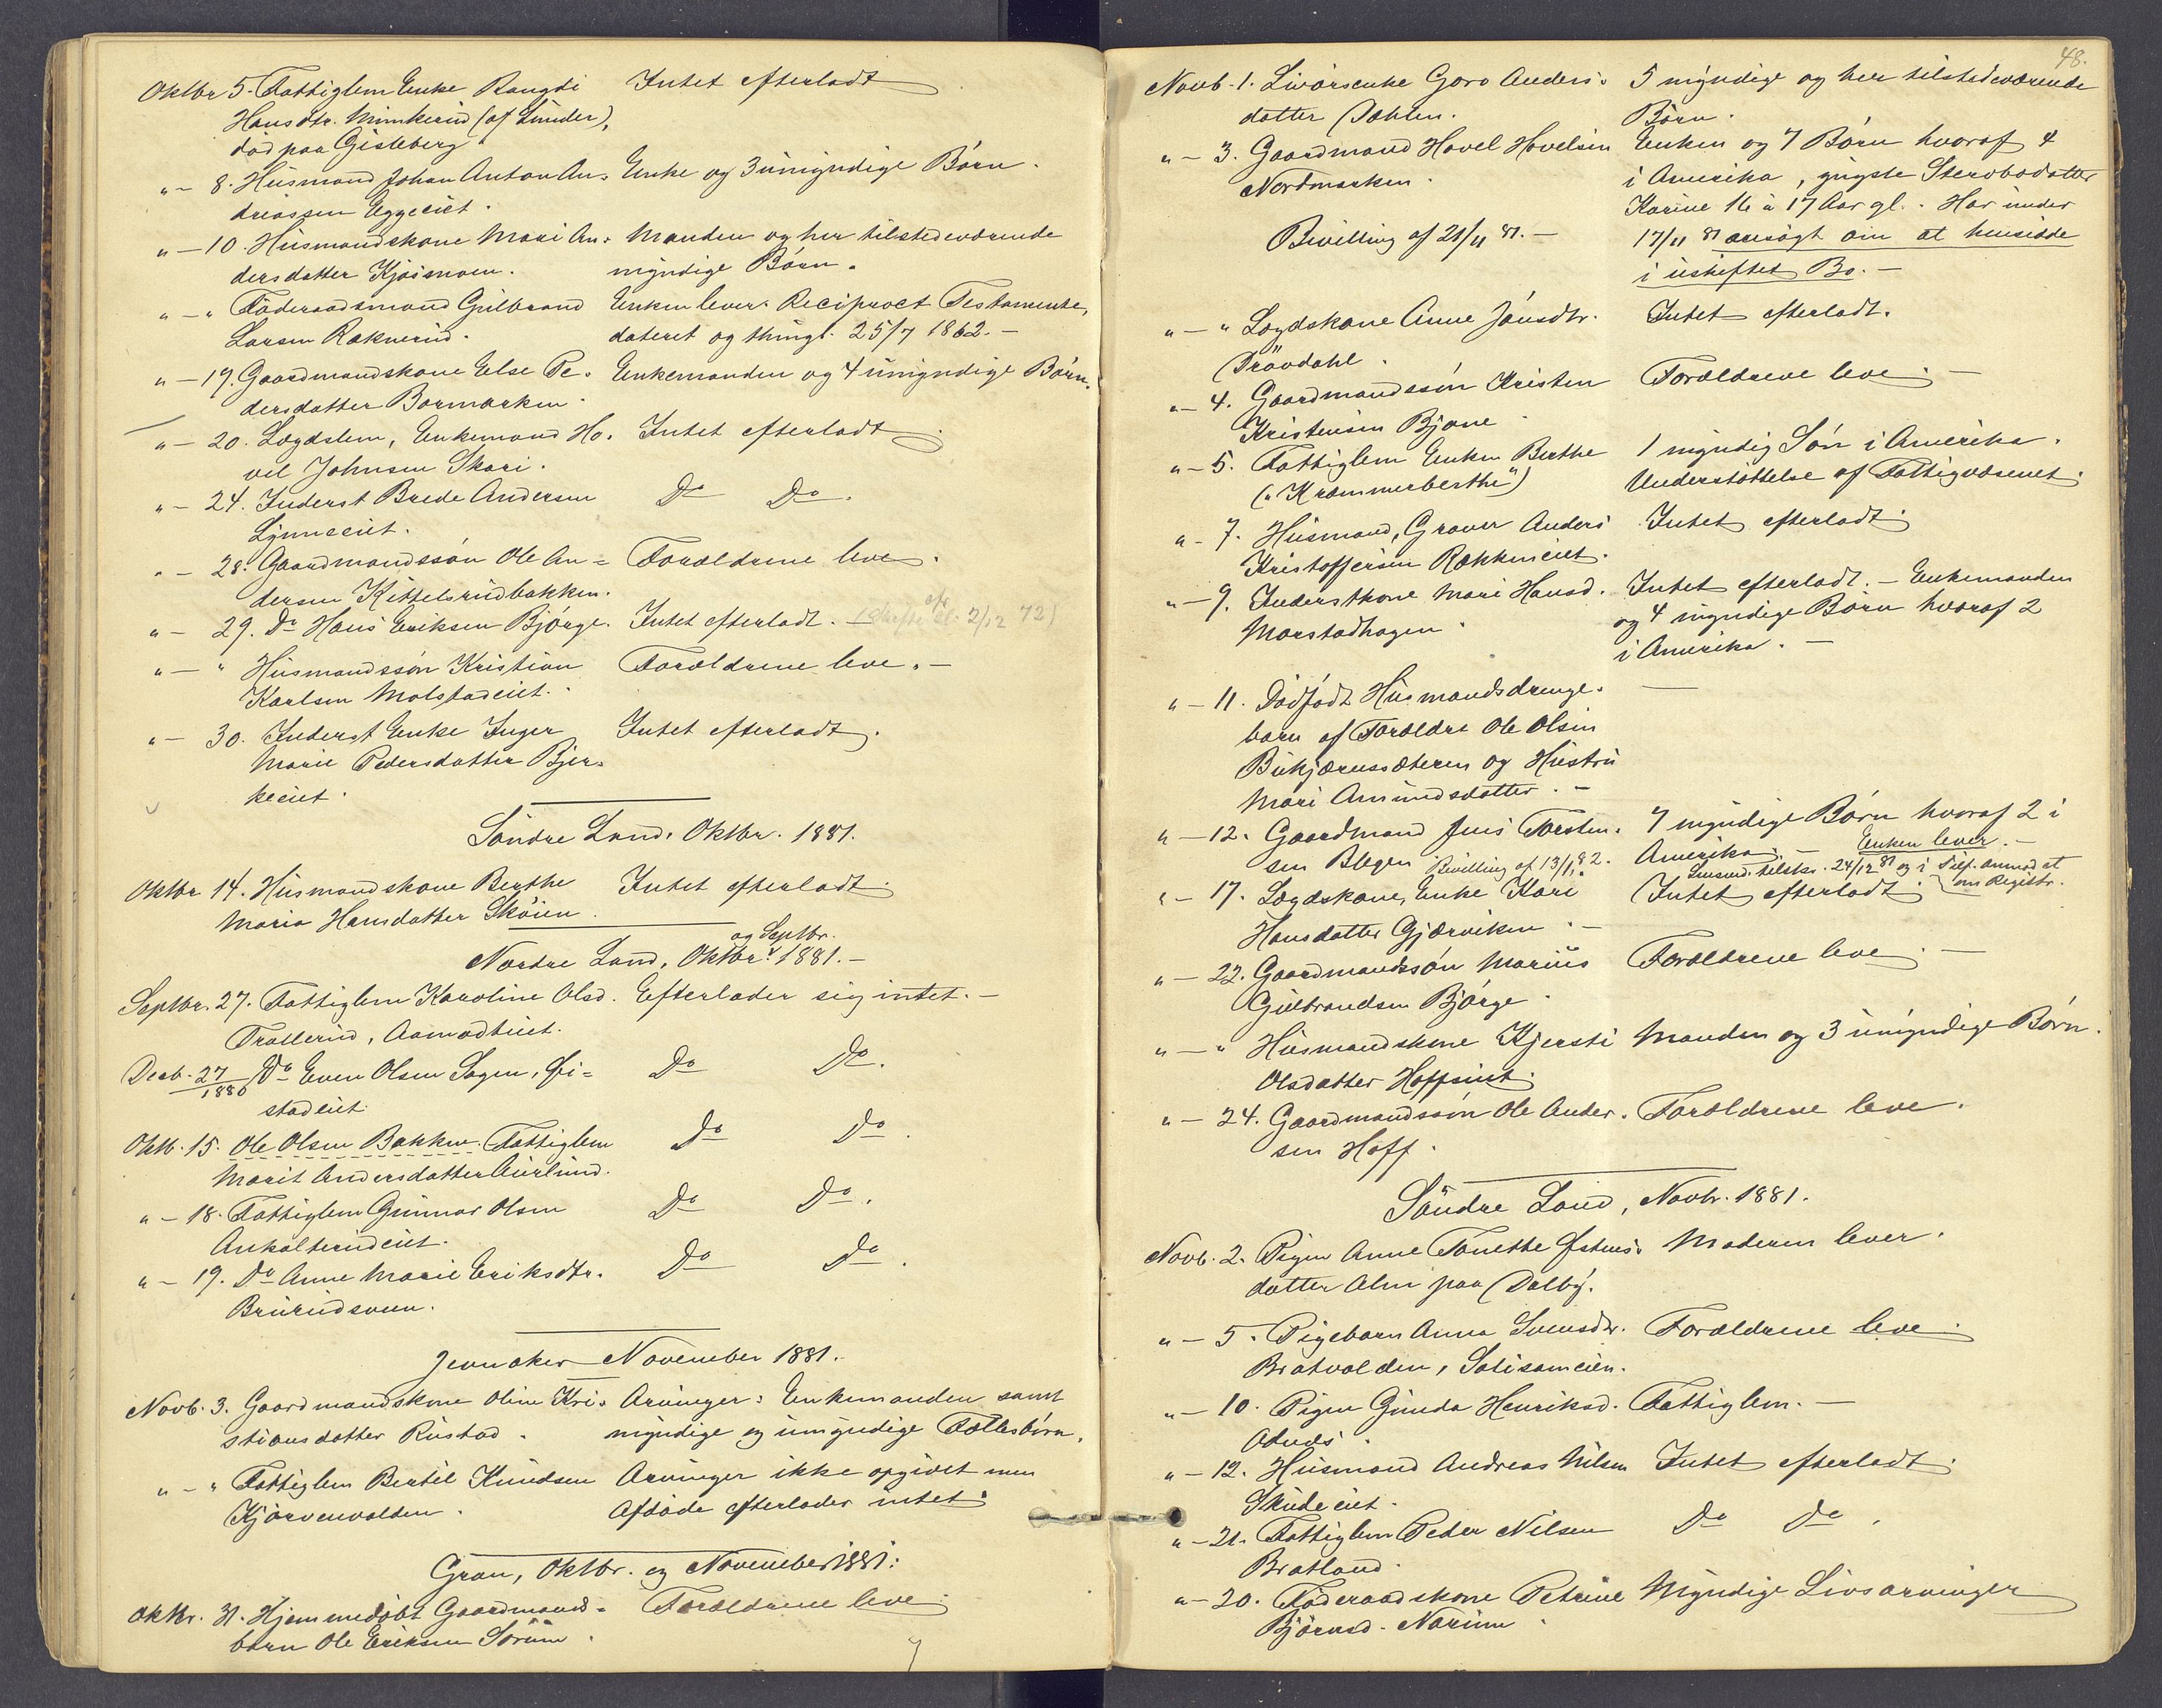 Oktbr 5. Fattiglem Enke Rangdi Intet efterladt
Hansdtr. Minkerud (af Lunder),
død paa Gisleberg
" - 8. Husmand Johan Anton An= Enke og 3 umyndige Børn.
driassen Eggeeiet.
" - 10. Husmandskone Mari An= Manden og her tilstedeværende
dersdatter Kjosmoen. myndige Børn.
" - " Føderaadsmand Gulbrand Enken lever. Reciproct Testamente,
Larsen Raknerud. dateret og thingl. 25/7 1862. -
" - 19. Gaardmandskone Else Pe= Enkemanden og 4 umyndige Børn.
dersdatter Bormarken.
" - 20. Lægdslem, Enkemand Ho= Intet efterladt
vel Johnsen Skari.
" - 24. Inderst Brede Andersen Do Do.
Lynneeiet.
" - 28. Gaardmandssøn Ole An= Forældrene leve.
dersen Kittelsrudbakken.
" - 29. Do Hans Eriksen Bjørge. Intet efterladt. - 2/12 72)
" - " Husmandssøn Kristian Forældrene leve. -
Karlsen Molstadeiet.
" - 30. Inderst Enke Inger Intet efterladt.
Marie Pedersdatter Bjer=
keeiet.
Söndre Land, Oktbr. 1881.
Oktbr 14. Husmandskone Berthe Intet efterladt.
Maria Hansdatter Skøien.
og Septbr.
Nordre Land, Oktbr. 1881. -
Septbr. 27. Fattiglem Karoline Olsd. Efterlader sig intet. -
Trollerud, Aamodteiet.
Decb. 27/1880 Do Even Olsen Sagen, Fi= Do Do.
stadeiet
Oktb. 15. Ole Olsen Bakken. Fattiglem Do Do.
Marit Andersdatter Aurlund.
" - 18. Fattiglem Gunnar Olsen Do Do.
Ankalterudeiet.
" - 19. Do Anne Marie Eriksdtr. Do Do.
Brurudsveen.
Jevnaker November 1881.
Novb. 3. Gaardmandskone Oline Kri= Arvinger: Enkemanden samt
stiansdatter Rustad. myndige og umyndige Fællesbørn.
" - " Fattiglem Bertil Knudsen Arvinger ikke opgivet men
Kjørvenvolden. Afdøde efterlader intet.
Gran, Oktbr. og November 1881:
Oktbr. 31. Hjemmedøbt Gaardmands= Forældrene leve.
barn Ole Eriksen Sørum.
48.
Novb. 1. Livørsenke Goro Anders= 5 myndige og her tilstedeværende
datter Dæhlen. Børn.
" - 3. Gaardmand Hovel Hovelsen Enken og 7 Børn hvoraf 4
Nordmarken. i Amerika, yngste Stervbodatter
Karine 16 à 17 Aar gl. Har under
Bevilling af 21/11 81. - 17/11 81 ansøgt om at hensidde
i uskiftet Bo. -
" - " Lægdskone Anne Jönsdtr. Intet efterladt.
Prövdahl.
" - 4. Gaardmandssøn Kristen Forældrene leve. -
Kristensen Bjone
" - 5. Fattiglem Enken Berthe 1 myndig Søn i Amerika.
("Kræmmerberthe") Understøttelse af Fattigvæsenet.
" - 7. Husmand, Graver Anders Intet efterladt.
Kristoffersen Rækkeneiet.
" - 9. Inderstkone Mari Hansd. Intet efterladt. - Enkemanden
Morstadhagen. og 4 myndige Børn hvoraf 2
i Amerika. -
" - 11. Dødfødt Husmandsdrenge=
barn af Forældre Ole Olsen
Bukjærnssæteren og Hustru
Mari Amundsdatter. -
" - 12. Gaardmand Jens Torsten= 7 myndige Børn hvoraf 2 i
sen Blegen. Bevilling af 13/1 82. Amerika. - Enken lever. -
tilskr. 24/12 81 og i om Registr.
" - 17. Lægdskone, Enke Kari Intet efterladt.
Hansdatter Gjærviken. -
" - 22. Gaardmandssøn Marius Forældrene leve. -
Gulbrandsen Bjørge.
" - " Husmandskone Kjersti Manden og 3 umyndige Børn.
Olsdatter Hoffseiet.
" - 24. Gaardmandssøn Ole Ander= Forældrene leve.
sen Hoff.
Söndre Land, Novbr. 1881.
Novb. 2. Pigen Anne Tonette Østens= Moderen lever.
datter Alm paa Dalby.
" - 5. Pigebarn Anna Svensdtr. Forældrene leve.
Bratvolden, Solisameien.
" - 10. Pigen Gunda Henriksd. Fattiglem. -
Odnes.
" - 12. Husmand Andreas Nilsen Intet efterladt.
Skudeeiet.
" - 21. Fattiglem Peder Nilsen Do Do.
Bratland.
" - 20. Føderaadskone Petrine Myndige Livsarvinger
Bjørnsd. Narum.